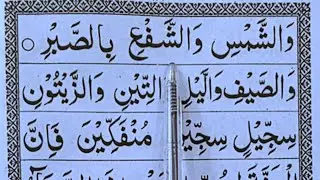 وَالشَّمْسِ وَالشَّفْعِ بِالصَّبْرِ ○
وَالصَّيْفِ وَالَّيْلِ وَالتِّيْنِ وَالزَّيْتُوْنِ
سِجِّيْلٍ سِجِّيْنٍ مُنْفَكِّيْنَ فَاِنَّ